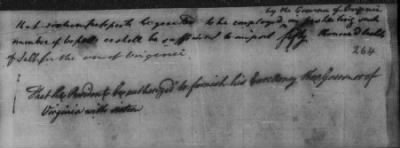 by the Governor of Virginia
that to be granted to be employed in protecting such
number of as shall be sufficient to import fifty thousand bushels
of Salt for the use of Virginia
264
That the President be authorized to furnish his Excellency the Governor of
Virginia with